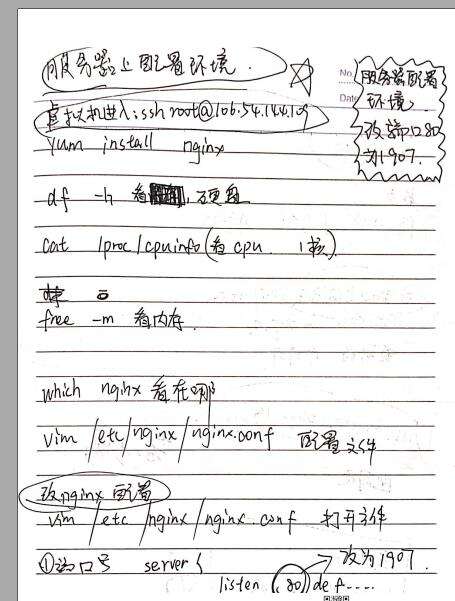 服务器上配置环境.
No.
Date
服务器配置
环境
改端口80
为1907.
虚拟机进入:ssh root@106.54.144.109
yum install nginx
df -h 看 硬盘
cat /proc/cpuinfo(看cpu 1核)
free -m 看内存.
which nginx 看在哪
vim /etc/nginx/nginx.conf 配置文件
改nginx 配置
vim /etc /nginx/nginx.conf 打开文件
①端口号 server { 改为1907.
listen 80 def....